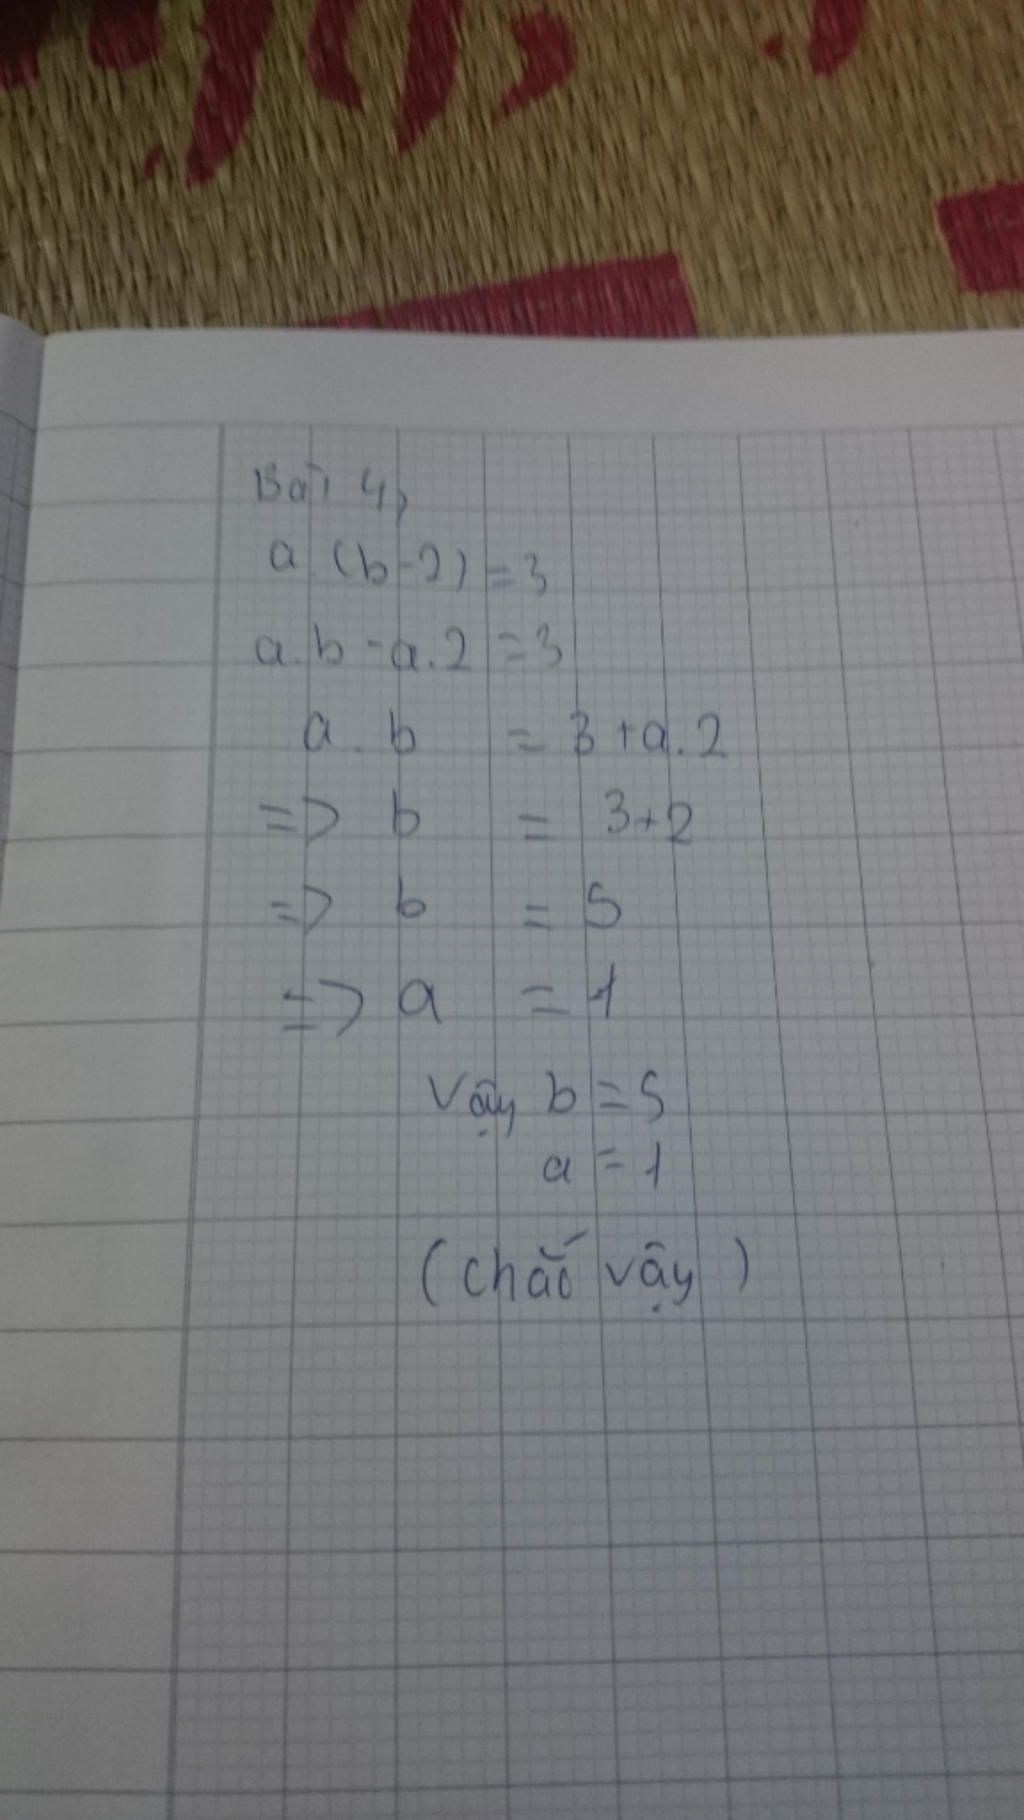 Bài 4,
a (b-2) = 3
a.b - a.2 = 3
a . b = 3 + a.2
=> b = 3+2
=> b = 5
=> a = 1
Vậy b = 5
a = 1
(chắc vậy)